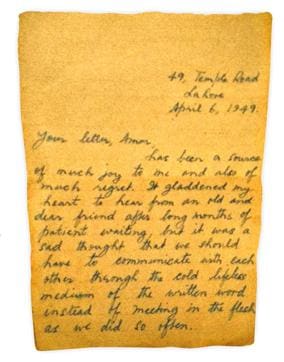 49, Temple Road
Lahore
April 6, 1949.
Your letter, Amar,
has been a source
of much joy to me and also of
much regret. It gladdened my
heart to hear from an old and
dear friend after long months of
patient waiting, but it was a
sad thought that we should
have to communicate with each
other through the cold lifeless
medium of the written word
instead of meeting in the flesh
as we did so often.